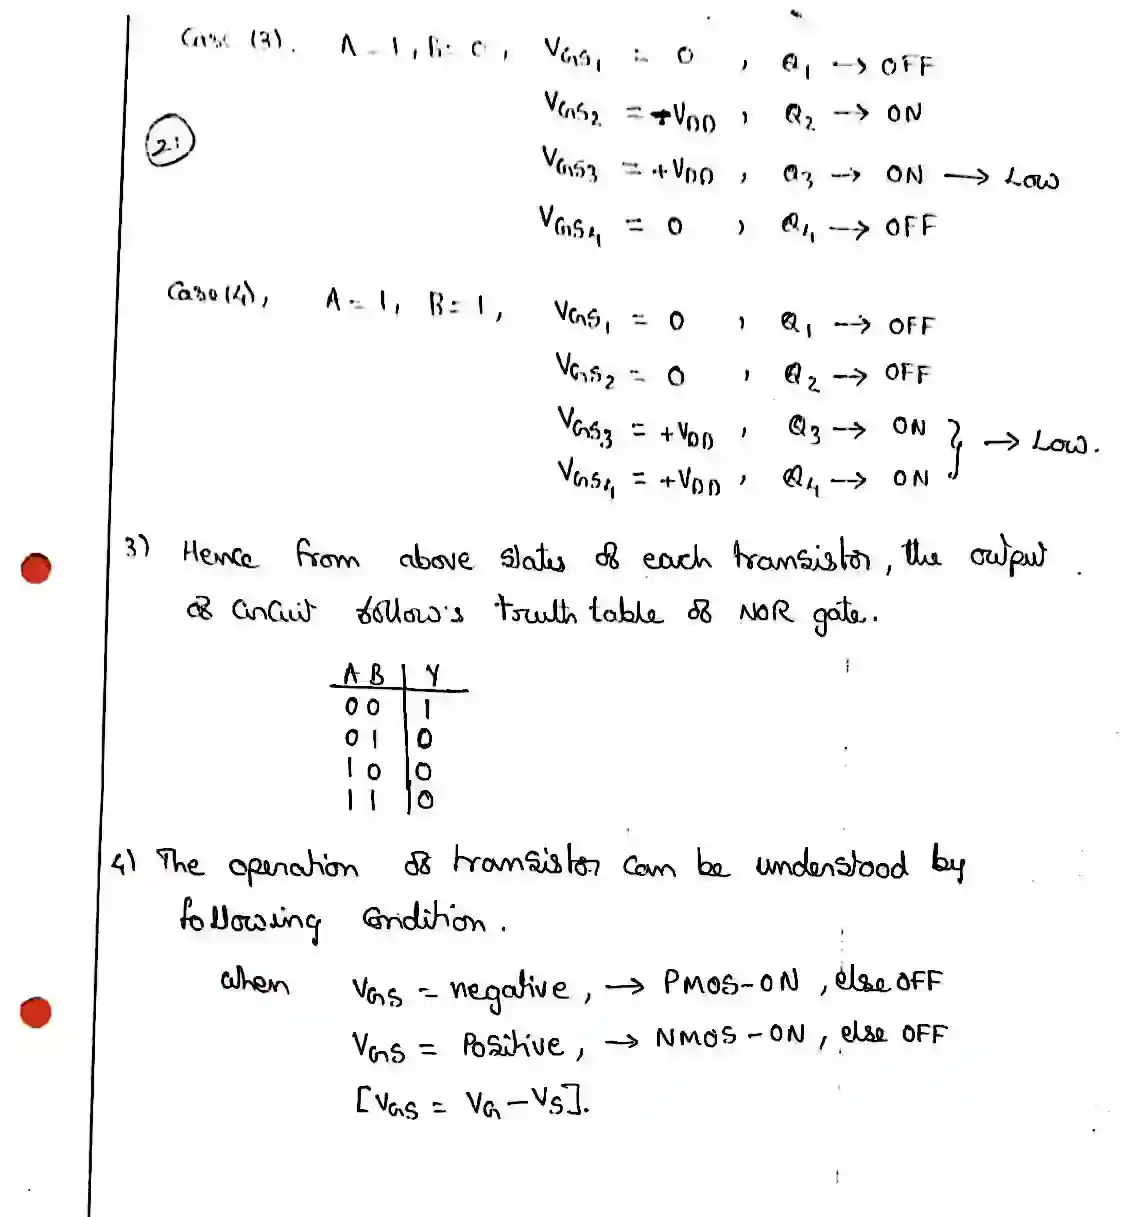 Case (3). A = 1, B = 0, VGS1 = 0 , Q1 → OFF
VGS2 = +VDD , Q2 → ON
(21)
VGS3 = +VDD , Q3 → ON → Low
VGS4 = 0 , Q4 → OFF
Case (4), A = 1, B = 1, VGS1 = 0 , Q1 → OFF
VGS2 = 0 , Q2 → OFF
VGS3 = +VDD , Q3 → ON
} → Low.
VGS4 = +VDD , Q4 → ON
3) Hence from above states of each transistor, the output
of circuit follow's truth table of NOR gate.
A B | Y
0 0 | 1
0 1 | 0
1 0 | 0
1 1 | 0
4) The operation of transistor can be understood by
following condition.
when VGS = negative, → PMOS-ON, else OFF
VGS = Positive, → NMOS-ON, else OFF
[VGS = VG - VS].